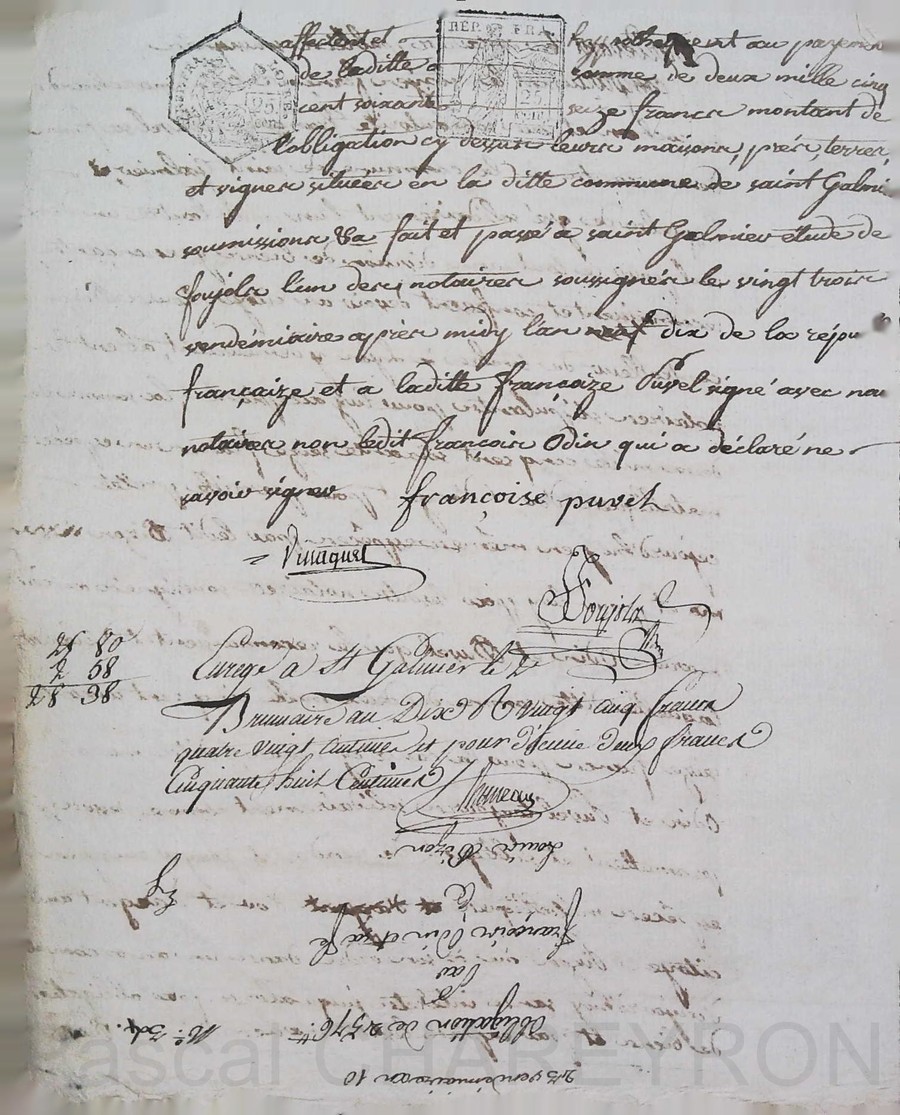 affectent et hypothequent au payemen
de laditte somme de deux mille cinq
cent soixante seize francs montant de
l'obligation cy dessus leurs maisons, prés, terres,
et vignes situées en la ditte commune de saint Galmi
soumissions &a fait et passé a saint Galmier étude de
foujols l'un des notaires soussignés le vingt trois
vendémiaire après midy l'an neuf dix de la répu
françaize et a laditte françoize Puvel signé avec nou
notaires non ledit françois Odin qui a déclaré ne
savoir signer françoise puvel
Foujols
25 80
2 58
28 38
Enregé a St Galmier le 2e
Brumaire an Dix R vingt cinq francs
quatre vingt centimes et pour dixieme deux francs
Cinquante huit Centimes
Louis Bizon
françois Odin et sa fe
par
Obligation de 2576tt
No. 304.
23 vendemiaire an 10
RÉP. FRA.
25
25
Pascal CHAREYRON